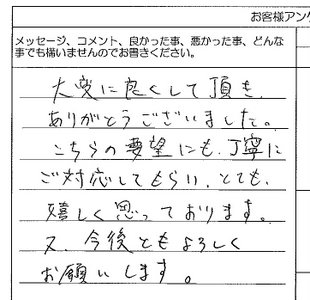 お客様アン
メッセージ、コメント、良かった事、悪かった事、どんな
事でも構いませんのでお書きください。
大変に良くして頂き、
ありがとうございました。
こちらの要望にも、丁寧に
ご対応してもらい、とても、
嬉しく思っております。
又、今後ともよろしく
お願いします。